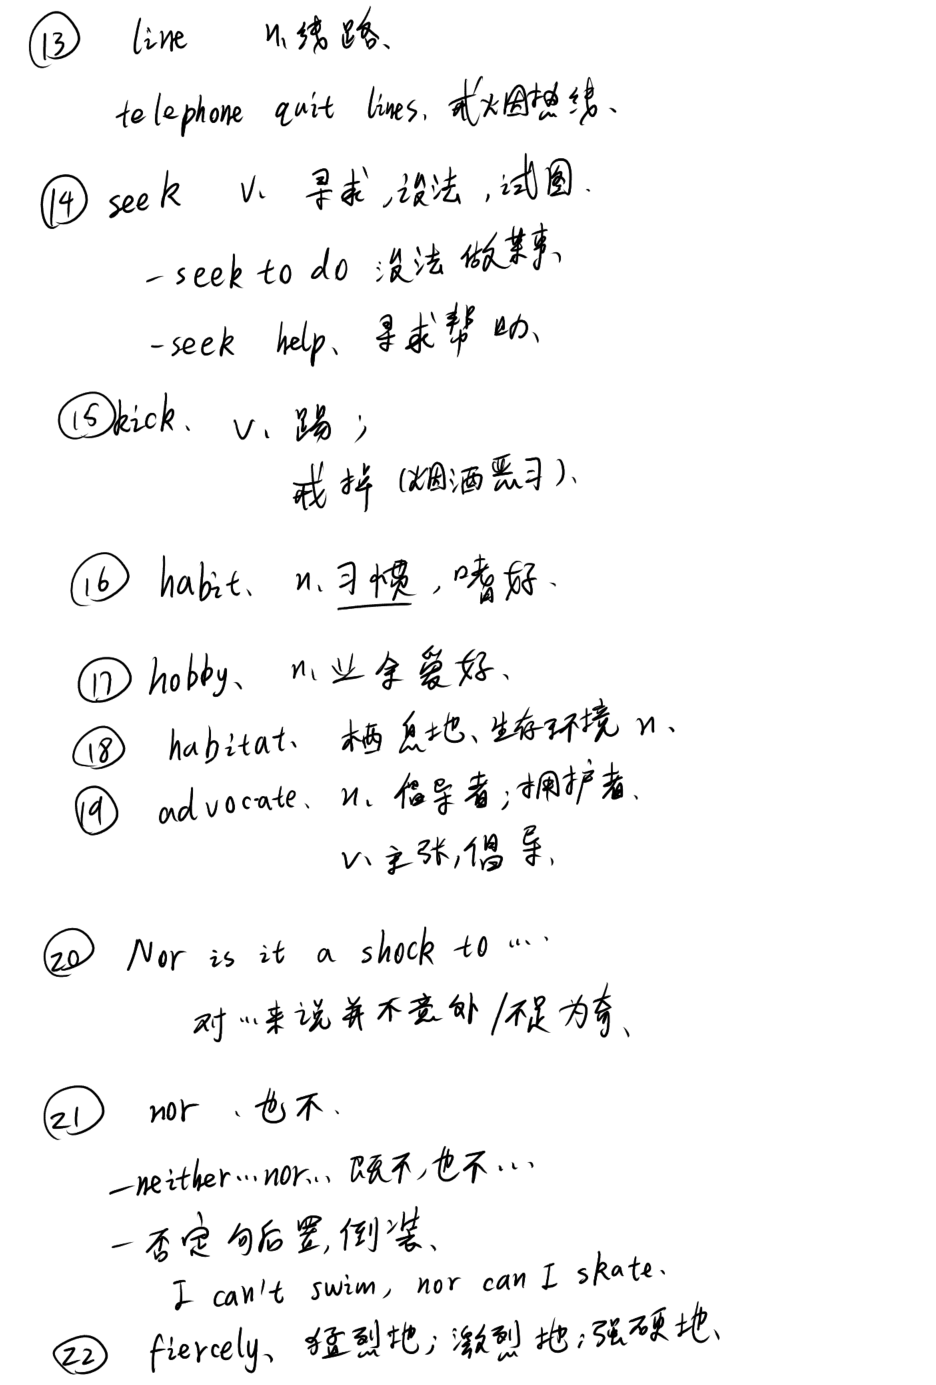 ⑬ line n、线路、
telephone quit lines. 戒火因热线、
⑭ seek v. 寻求,设法,试图.
-seek to do 设法 做某事、
-seek help、寻求帮助、
⑮kick. v、踢;
戒掉(烟酒恶习)、
⑯ habit、n、习惯,嗜好.
⑰ hobby、n、业余爱好、
⑱ habitat、栖息地、生存环境 n、
⑲ advocate、n、倡导者;拥护者、
v、主张,倡导、
⑳ Nor is it a shock to ...
对...来说并不意外/不足为奇、
㉑ nor、也不、
-neither...nor... 既不,也不...
- 否定句后置,倒装、
I can't swim, nor can I skate.
㉒ fiercely、猛烈地;激烈地;强硬地、